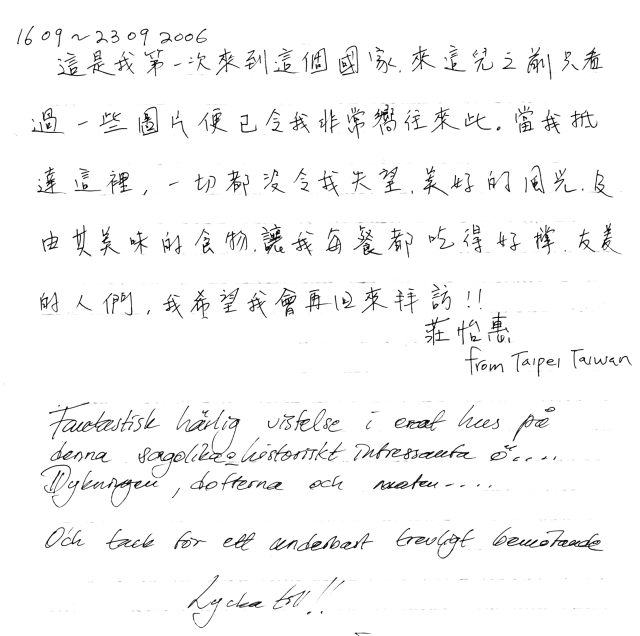 16 09 ~ 23 09 2006
這是我第一次來到這個國家.來這兒之前只看
過一些圖片便已令我非常嚮往來此。當我抵
達這裡，一切都沒令我失望.美好的風光.及
由其美味的食物.讓我每餐都吃得好撐.友善
的人們，我希望我會再回來拜訪!!
莊怡惠
from Taipei Taiwan
Fantastisk härlig vistelse i erat hus på
denna sagolika o historiskt intressanta ö....
Dykningen, dofterna och maten....
Och tack för ett underbart trevligt bemötande
Lycka till!!